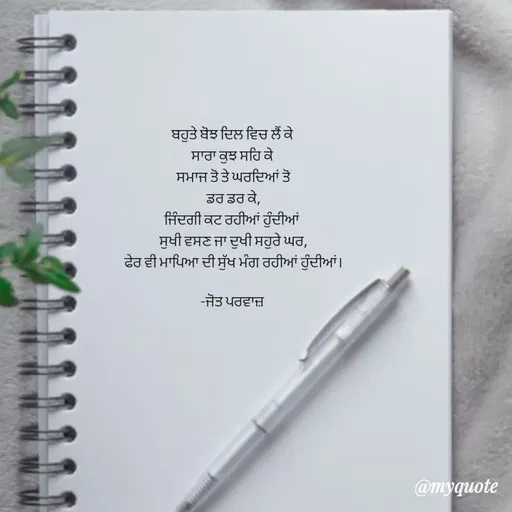 ਬਹੁਤੇ ਬੋਝ ਦਿਲ ਵਿਚ ਲੈਂ ਕੇ
ਸਾਰਾ ਕੁਝ ਸਹਿ ਕੇ
ਸਮਾਜ ਤੋ ਤੇ ਘਰਦਿਆਂ ਤੋ
ਡਰ ਡਰ ਕੇ,
ਜਿੰਦਗੀ ਕਟ ਰਹੀਆਂ ਹੁੰਦੀਆਂ
ਸੁਖੀ ਵਸਣ ਜਾ ਦੁਖੀ ਸਹੁਰੇ ਘਰ,
ਫੇਰ ਵੀ ਮਾਪਿਆ ਦੀ ਸੁੱਖ ਮੰਗ ਰਹੀਆਂ ਹੁੰਦੀਆਂ।
-ਜੋਤ ਪਰਵਾਜ਼
@myquote